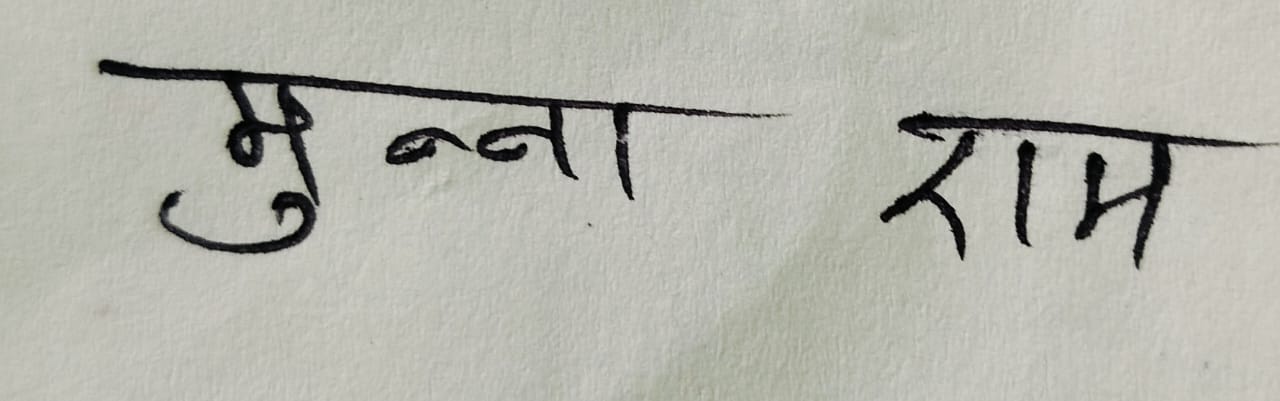 मुन्ना राम